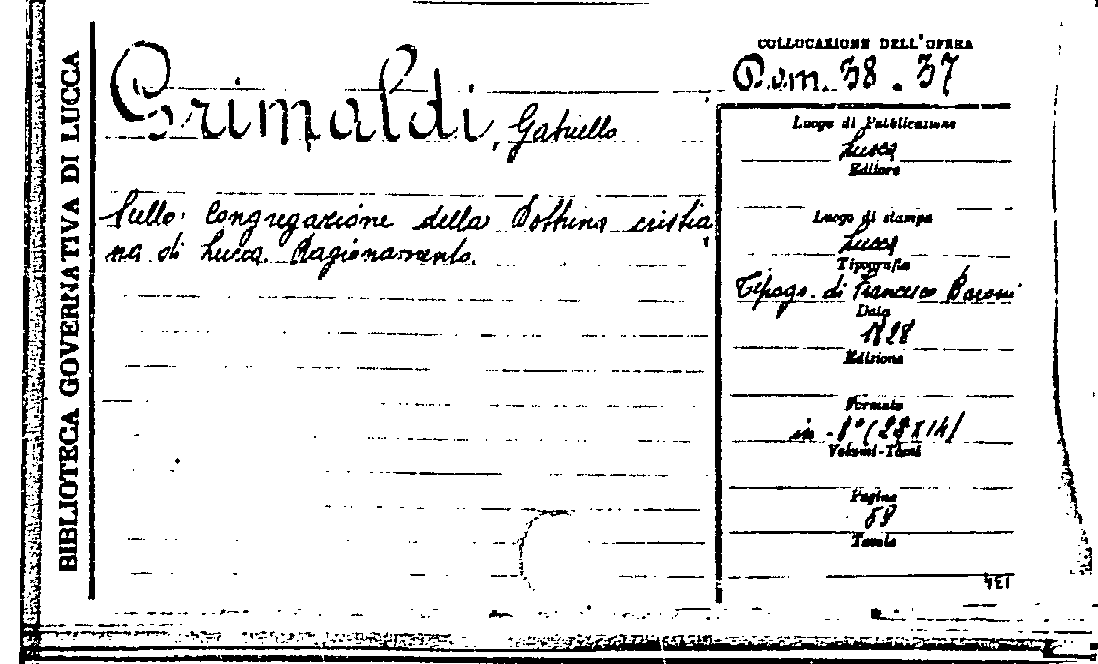 BIBLIOTECA GOVERNATIVA DI LUCCA
Grimaldi, Gabriello
Sulla Congregazione della Dottrina cristia
na di Lucca. Ragionamento.
COLLOCAZIONE DELL'OPERA
Dom. 38.37
Luogo di Pubblicazione
Lucca
Editore
Luogo di stampa
Lucca
Tipografia
Tipogr. di Francesco Baroni
Data
1828
Edizione
Formato
in-8° (23x14)
Volumi-Tomi
Pagine
Tavole